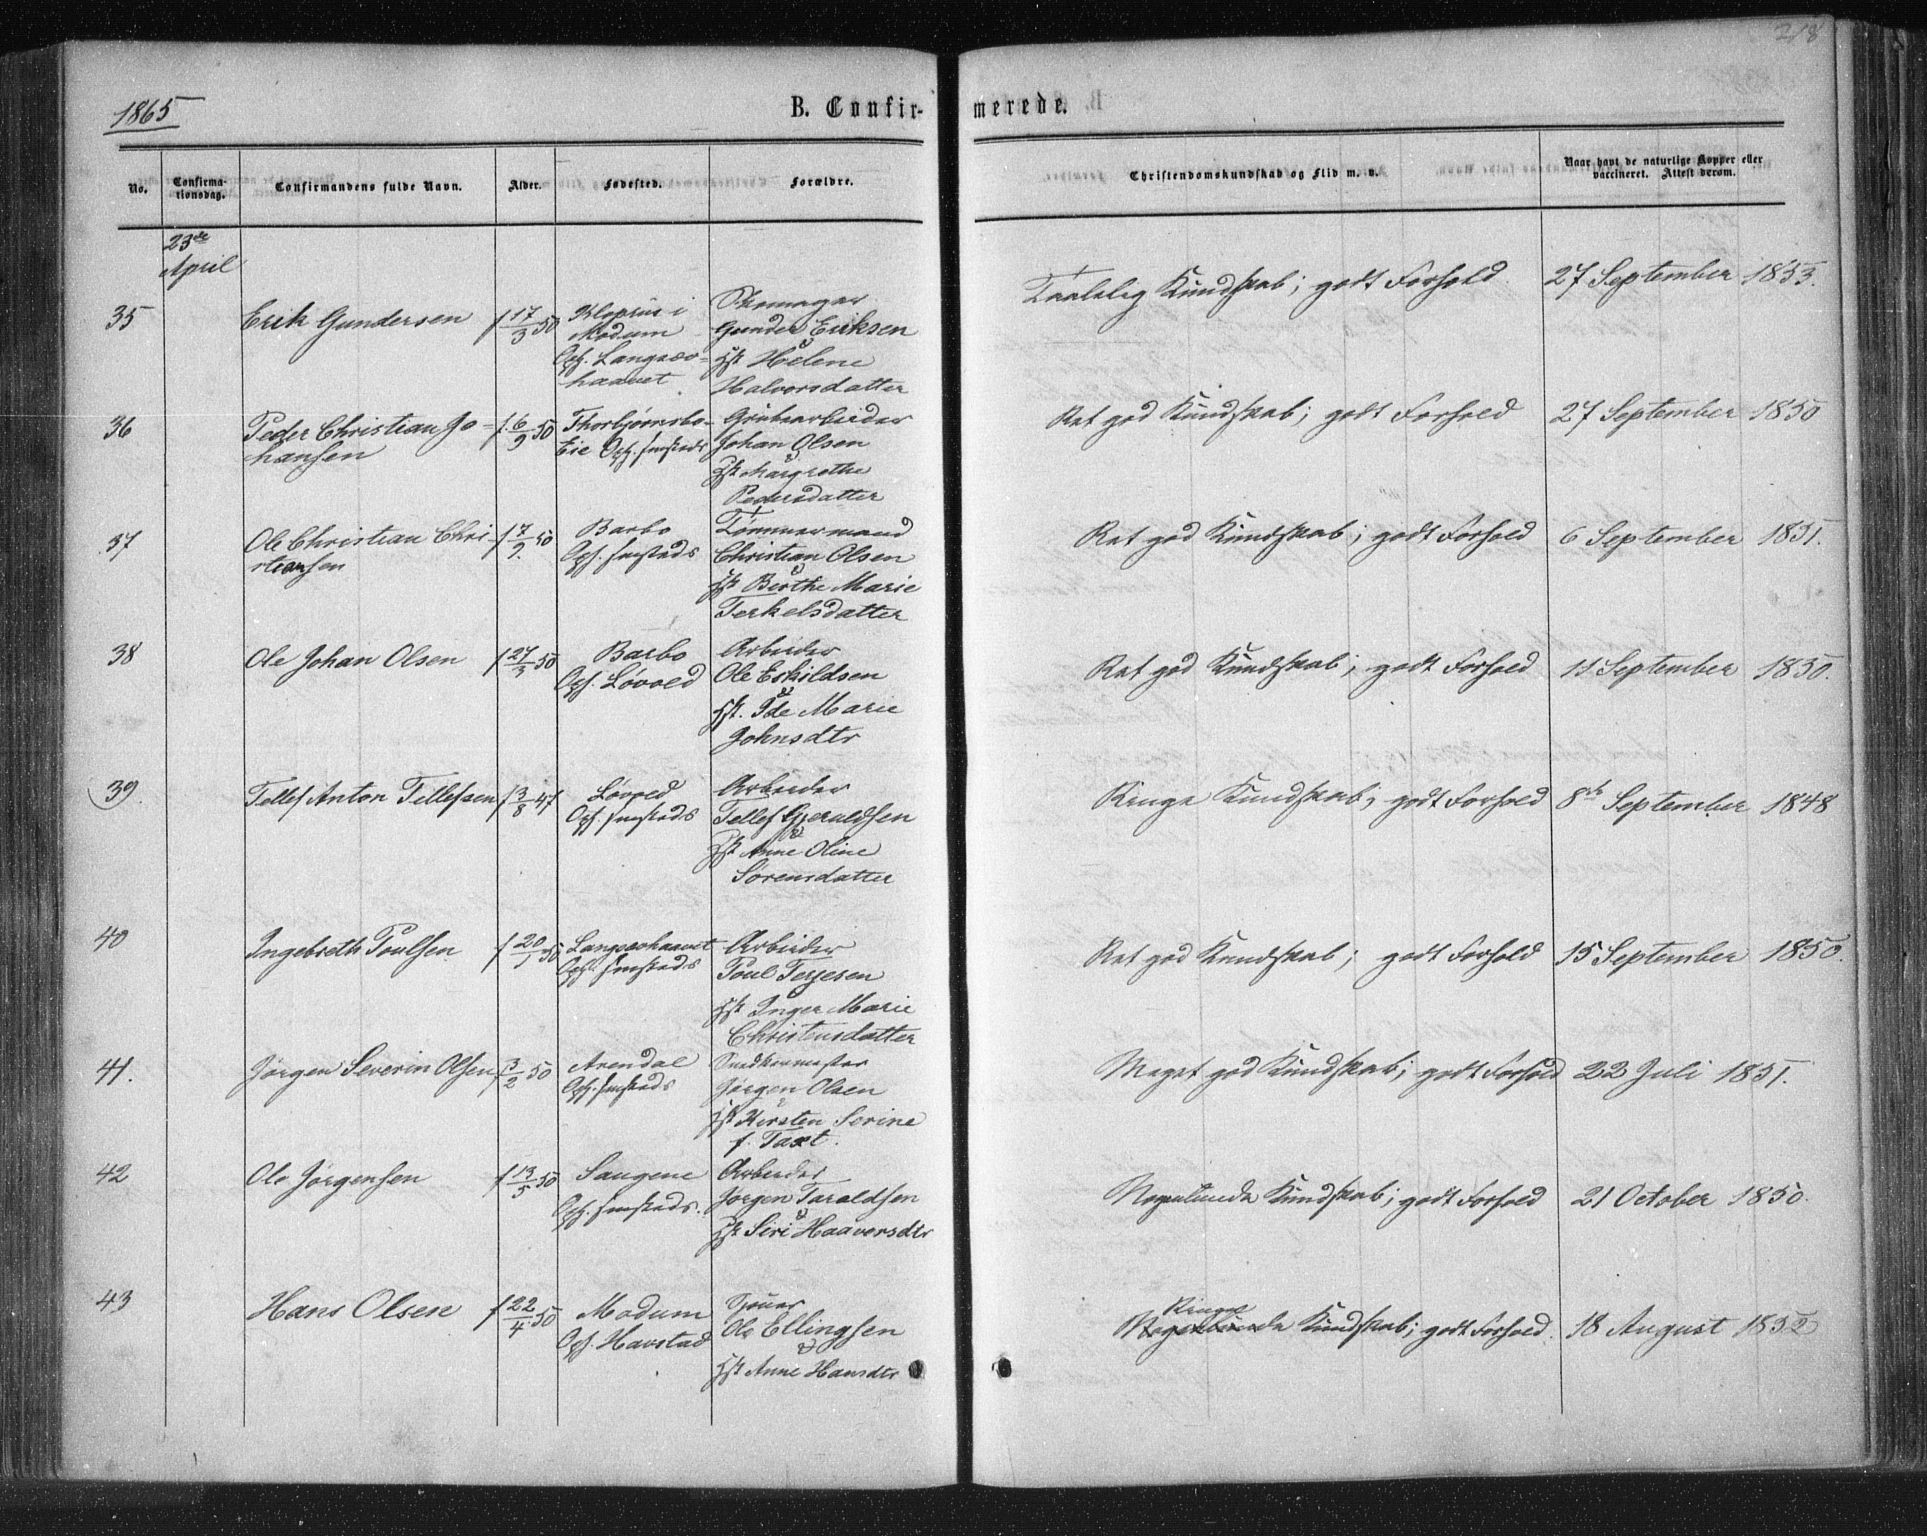 218
1865
B. Confir-
merede.
No.
Confirma-
tionsdag.
Confirmandens fulde Navn.
Alder.
Fødested.
Forældre.
Christendomskundskab og Flid m. v.
Naar havt de naturlige Kopper eller
vaccineret. Attest derom.
23de
April
35
Erik Gundersen
f 17/3 50
i
Modum
Oph. Langsæv-
haavet
Skomager
Gunder Eriksen
&
Hst Helene
Halvorsdatter
Taalelig Kundskab; godt Forhold
27 September 1853.
36
Peder Christian Jo-
hansen
f. 6/9 50
Thorbjørnsbo-
Eie Oph. smsteds
Grubearbeider
Johan Olsen
&
Hst Margrethe
Pedersdatter
Ret god Kundskab; godt Forhold
27 September 1850
37
Ole Christian Chri-
stiansen
f 7/9 50
Barbo
Oph. smsteds
Tømmermand
Christian Olsen
&
Hst Berthe Marie
Terkelsdatter
Ret god Kundskab; godt Forhold
6 September 1851.
38
Ole Johan Olsen
f 27/3 50
Barbo
Oph. Løvold
Arbeider
Ole Eskildsen
&
Hst. Ide Marie
Johnsdtr
Ret god Kundskab; godt Forhold
11 September 1850.
39.
Tellef Anton Tellefsen
f 3/8 47
Løvold
Oph. smsteds
Arbeider
Tellef Gjeraldsen
&
Hst Anne Oline
Sørensdatter
Ringe Kundskab; godt Forhold
8de September 1848
40
Ingebreth Poulsen
f 20/1 50
Langsævhaavet
Oph. smsteds
Arbeider
Poul Terjesen
&
Hst Inger Marie
Christensdatter
Ret god Kundskab; godt Forhold
15 September 1850.
41.
Jørgen Severin Olsen
f 3/2 50
Arendal
Oph. smsteds
Snedkermester
Jørgen Olsen
&
Hst Kirsten Serine
f. Taxt.
Meget god Kundskab; godt Forhold
22 Juli 1851.
42
Ole Jørgensen
f 13/5 50
Sangene
Oph. smsteds.
Arbeider
Jørgen Taraldsen
&
Hst Siri Haaversdtr
Nogenlunde Kundskab; godt Forhold
21 October 1850.
43
Hans Olsen
f 22/4 50
Modum
Oph. Havstad
Sjouer
Ole Ellingsen
&
Hst Anne Hansdtr
Ringe
Nogenlunde Kundskab; godt Forhold.
18 August 1852